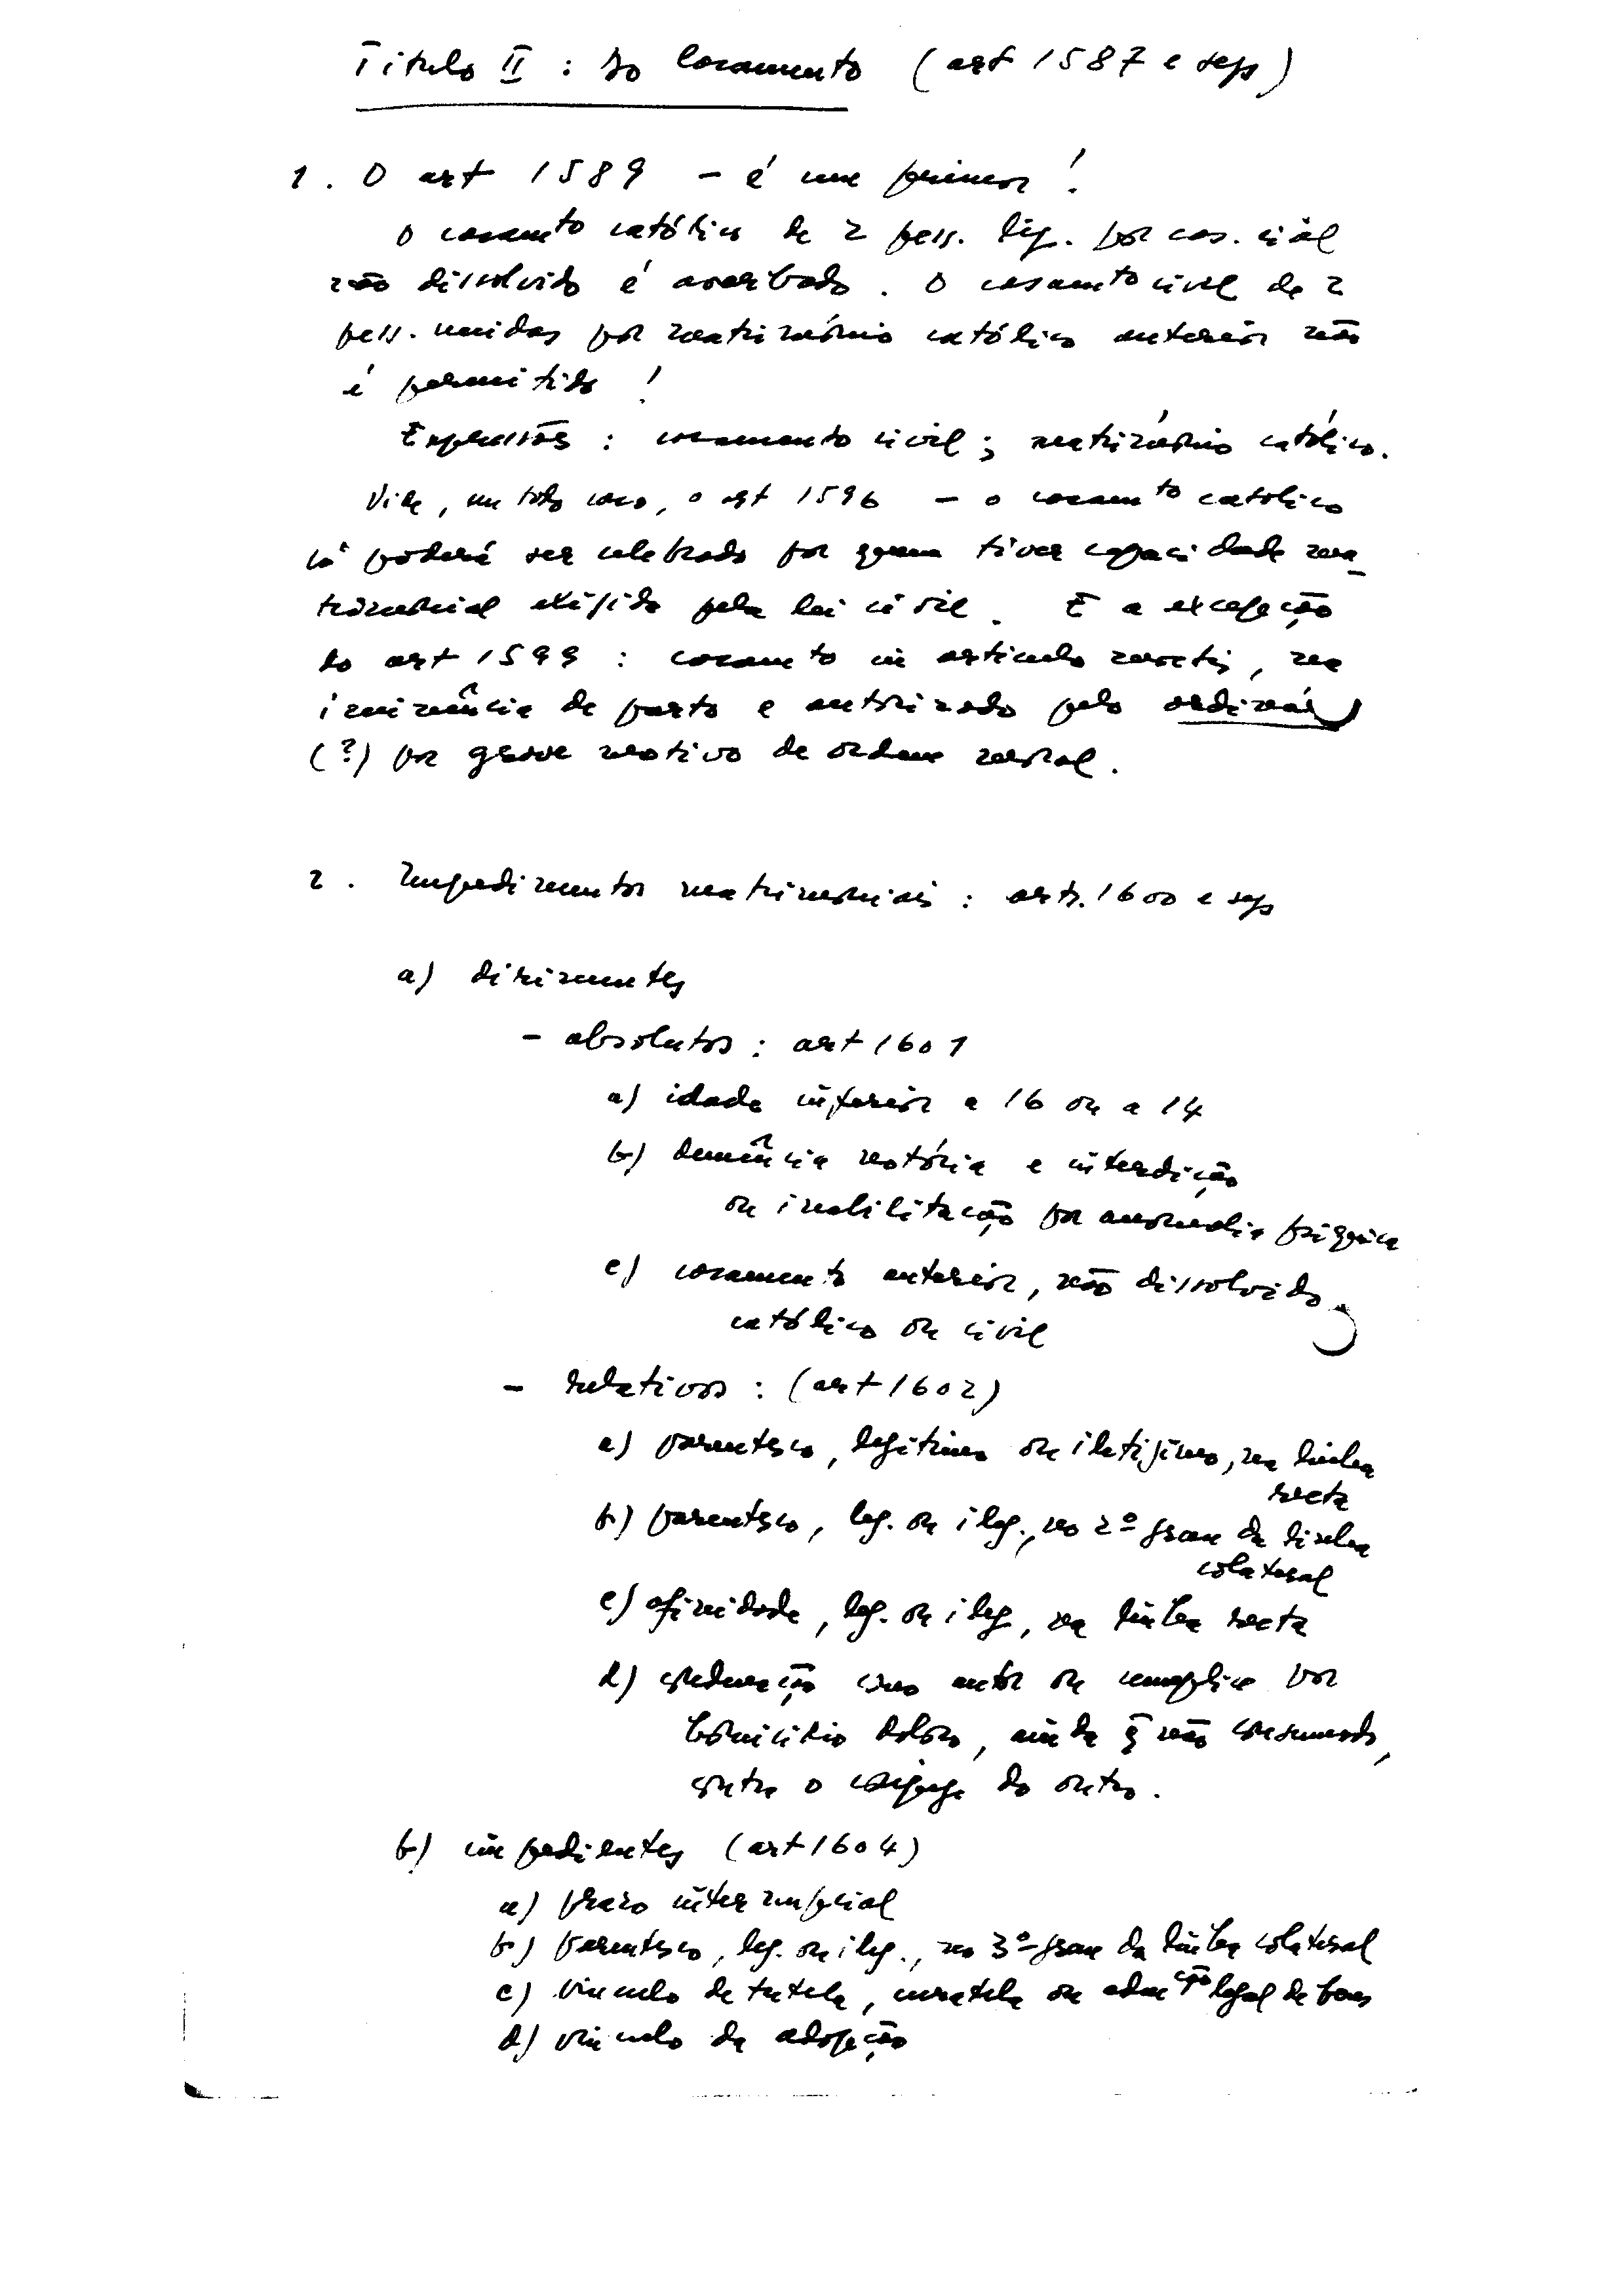 Titulo II : do Casamento (art 1587 e segs)
1. O art 1589 - é um primor !
O casamto católico de 2 pess. lig. por cas. civil
não dissolvido é averbado. O casamto civil de 2
pess. unidas por matrimónio católico anterior não
é permitido !
Expressões : casamento civil ; matrimónio católico.
Vide, em todo caso, o art 1596 - o casamto católico
só poderá ser celebrado por quem tiver capacidade ma_
trimonial exigida pela lei civil. E a excepção
do art 1599 : casamto in articulo mortis, na
iminência de parto e autorizado pelo ordinário
(?) por grave motivo de ordem moral.
2. Impedimentos matrimoniais : arts. 1600 e segs
a) dirimentes
- absolutos : art 1601
a) idade inferior a 16 ou a 14
b) demência notória e interdição
ou inabilitação por anomalia psíquica
c) casamento anterior, não dissolvido,
católico ou civil
- relativos : (art 1602)
a) parentesco, legítimo ou iletijimo, na linha
recta
b) parentesco, leg. ou ileg., no 2º grau da linha
colateral
c) afinidade, leg. ou ileg, na linha recta
d) condenação como autor ou cumplice por
homicidio doloso, ainda q̃ não consumado,
contra o conjuge do outro.
b) impedientes (art 1604)
a) prazo internupcial
b) parentesco, leg. ou ileg., no 3º grau da linha colateral
c) vinculo de tutela, curatela ou admção legal de bens
d) vinculo de adopção